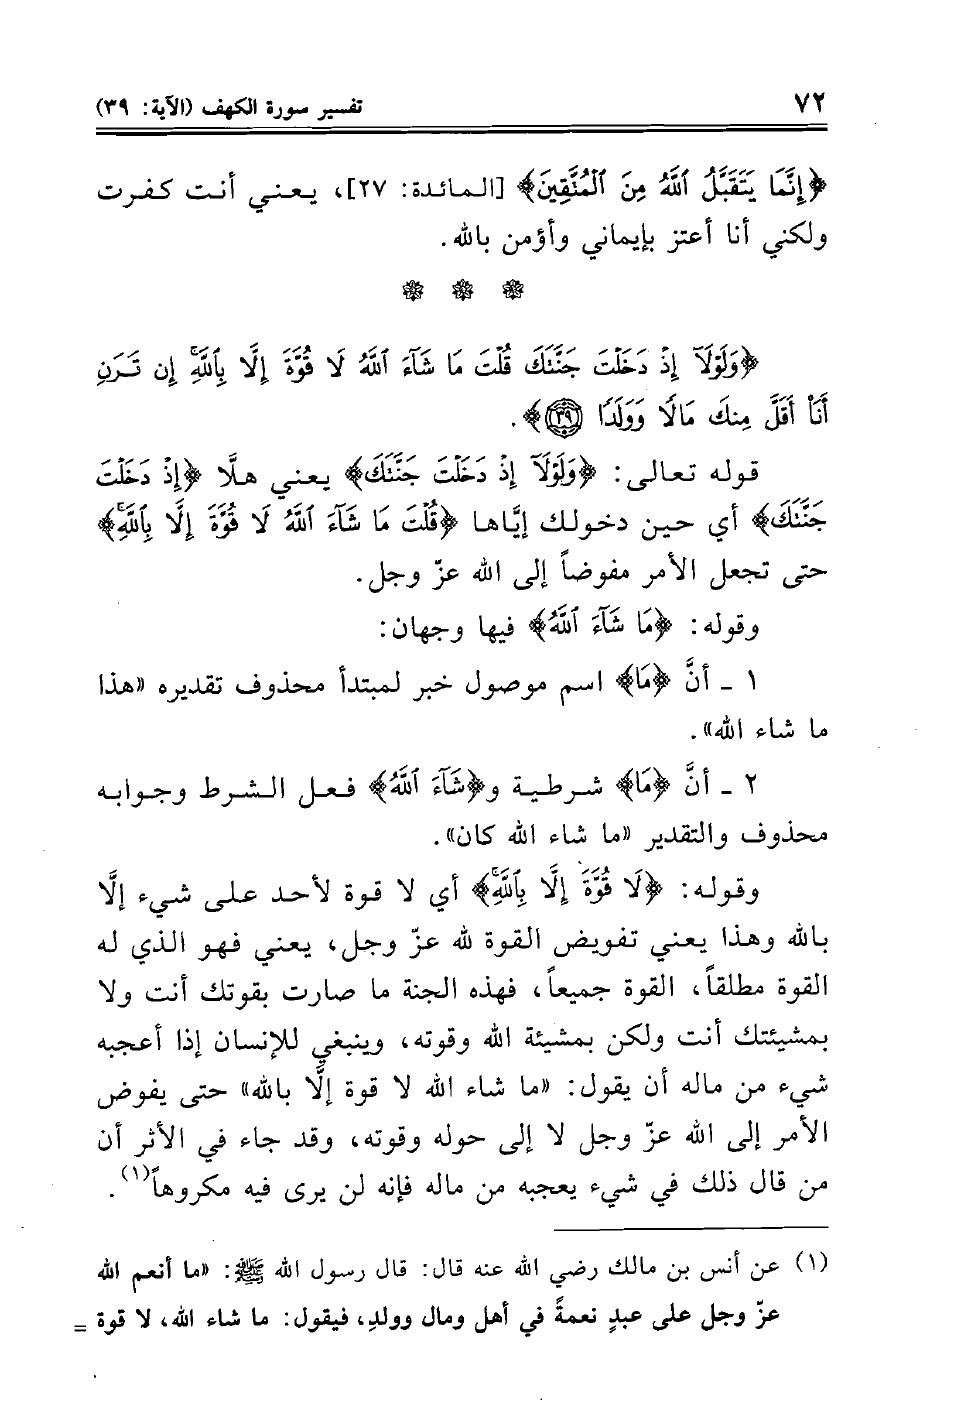 ٧٢ تفسير سورة الكهف (الآية: ٣٩)
﴿إِنَّمَا يَتَقَبَّلُ ٱللَّهُ مِنَ ٱلْمُتَّقِينَ﴾ [المائدة: ٢٧]، يعني أنت كفرت
ولكني أنا أعتز بإيماني وأؤمن بالله.
﴿وَلَوْلَآ إِذْ دَخَلْتَ جَنَّتَكَ قُلْتَ مَا شَآءَ ٱللَّهُ لَا قُوَّةَ إِلَّا بِٱللَّهِۚ إِن تَرَنِ
أَنَا۠ أَقَلَّ مِنكَ مَالًا وَوَلَدًا ٣٩﴾.
قوله تعالى: ﴿وَلَوْلَآ إِذْ دَخَلْتَ جَنَّتَكَ﴾ يعني هلَّا ﴿إِذْ دَخَلْتَ
جَنَّتَكَ﴾ أي حين دخولك إيَّاها ﴿قُلْتَ مَا شَآءَ ٱللَّهُ لَا قُوَّةَ إِلَّا بِٱللَّهِۚ﴾
حتى تجعل الأمر مفوضاً إلى الله عزّ وجل.
وقوله: ﴿مَا شَآءَ ٱللَّهُ﴾ فيها وجهان:
١ ـ أنَّ ﴿مَا﴾ اسم موصول خبر لمبتدأ محذوف تقديره «هذا
ما شاء الله».
٢ ـ أنَّ ﴿مَا﴾ شرطية و﴿شَآءَ ٱللَّهُ﴾ فعل الشرط وجوابه
محذوف والتقدير «ما شاء الله كان».
وقوله: ﴿لَا قُوَّةَ إِلَّا بِٱللَّهِۚ﴾ أي لا قوة لأحد على شيء إلَّا
بالله وهذا يعني تفويض القوة لله عزّ وجل، يعني فهو الذي له
القوة مطلقاً، القوة جميعاً، فهذه الجنة ما صارت بقوتك أنت ولا
بمشيئتك أنت ولكن بمشيئة الله وقوته، وينبغي للإنسان إذا أعجبه
شيء من ماله أن يقول: «ما شاء الله لا قوة إلَّا بالله» حتى يفوض
الأمر إلى الله عزّ وجل لا إلى حوله وقوته، وقد جاء في الأثر أن
من قال ذلك في شيء يعجبه من ماله فإنه لن يرى فيه مكروهاً(١).
(١) عن أنس بن مالك رضي الله عنه قال: قال رسول الله ﷺ: «ما أنعم الله
عزّ وجل على عبدٍ نعمةً في أهل ومال وولدٍ، فيقول: ما شاء الله، لا قوة =